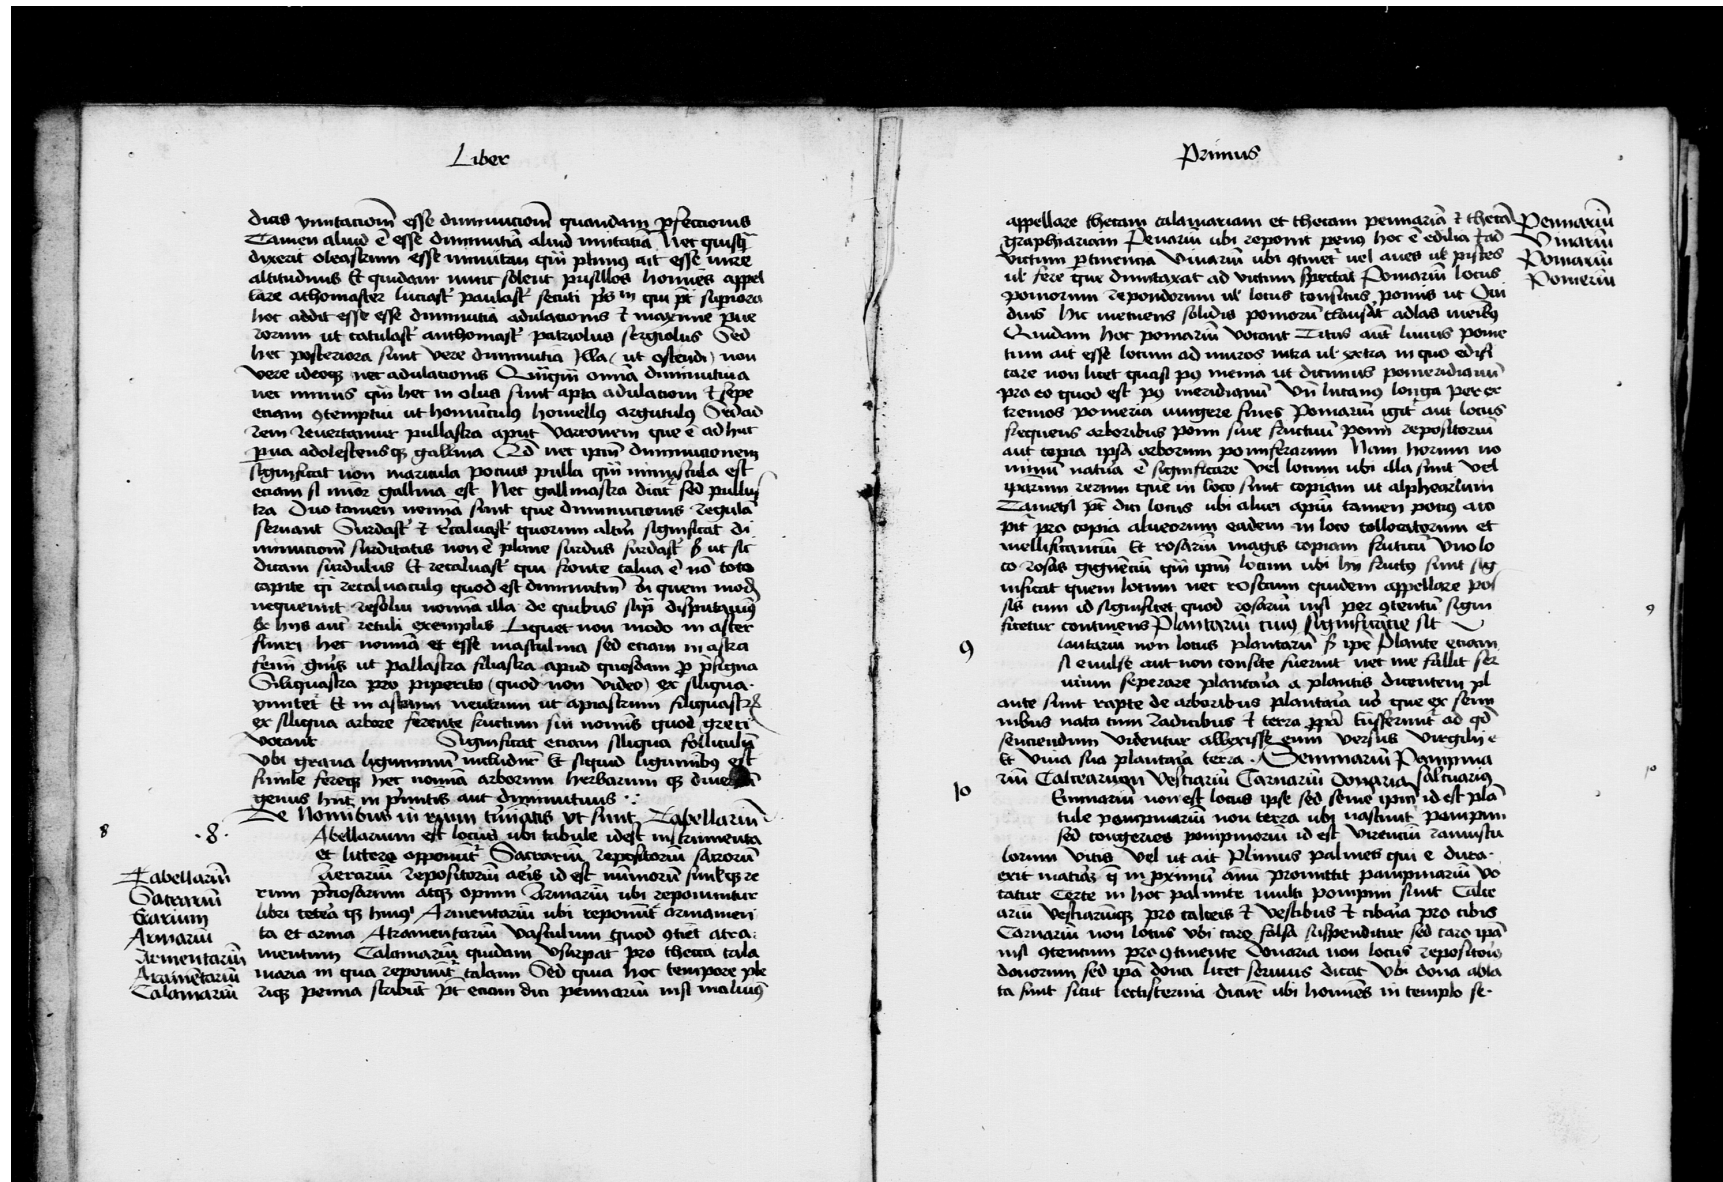 Liber
dicis vnitaciom̄ esse diminuciom̄ quandam ꝑfeccionis
Tamen aliud ē esse diminutiā aliud imitatiā Nec quisq̄
dixerit oleastrum esse
altitudinis Et quidam nunc solent pusillos homines appel
lare athomaster luciast paulast secuti
hoc addit esse esse diminutiā adulacionis ⁊ maxime pue
rorum ut catulast anthomast patriolus sergiolus Sed
hec posteriora sunt vere diminutiā Illa (ut ostendi) non
vere ideoqꝫ nec adulacionis Qūq̄m omnia diminutiua
nec minus q̄m hec in olus sunt apta adulaciom ⁊ sepe
etiam ꝯtemptui ut homūculꝰ homellꝰ argutulꝰ Sed ad
rem reuertamur pullastra aput varronem que ē ad huc
ꝑua adolescensqꝫ gallina Qd̄ nec ipm̄ diminucionem
significat non matricula pocius pulla q̄m minuscula est
etiam si mīor gallina est Nec gallinastra dicit sed pullas
tra Duo tamen nomina sunt que diminucionis regulā
seruant Surdast ⁊ recaluast quorum altm̄ significat di
minuciom̄ surditatis non ē plane surdus surdast ut sic
dicam surdulus Et recaluast qui fronte calua ē nō toto
capite qi recaluaculus quod est diminutiū quem modꝫ
nequeunt resolui nomīa illa de quibus sup̄ disputauimꝰ
Ex hiis aut retuli exemplis Liquet non modo in aster
finiri hec nomīa et esse masculina sed etiam in astra
femī gnis ut pallastra filiastra apud quosdam ꝓ
Siliquastra pro piperito (quod non video) ex siliqua
venitet Et in astrum neutrum ut apiastrum siliquastrū
ex siliqua arbore ferente fructum sui nomīs quod greci
vocant Significat etiam siliqua folliculū
vbi grana liguminū includūt Et siquid liguminibꝰ est
simile fereqꝫ hec nomīa arborum herbarum qꝫ
genus hn̄t in aut diminutiuis
De Nomibus in rium t̓mīatis vt sunt Tabellariū
8 .8. Abellarium est locus ubi tabule idest instrumenta
et littere opponūt Sacrariū repositoriū sacrorū
Tabellariū Aerariū repositoriū aeris id est nūmorū re
Sacrariū rum p̄ciosarum atqꝫ opum Armariū ubi reponuntur
Erarium libri ceteā qꝫ Armentariū ubi reponūt armamen
Armariū ta et arma Atramentariū vasculum quod ꝯtiet atra
Armentariū mentum Calamariū quidam vsurpat pro theca cala
Atramētariū maria in qua reponūt calami Sed quia hoc tempore ple
Calamariū riqꝫ penna scribūt pt̄ etiam dici pennariū nisi maluimꝰ
Primus
appellare thecam calamariam et thecam pennariā ⁊ thecā Pennariū
graphiariam Penariū ubi reponit penus hoc ē edilia ad Vinariū
victum ꝑtinencia Viuariū ubi ꝯtinet uel aues ul pisces Pomariū
ul fere que dumtaxat ad victum spectat Pomariū locus Pomeriū
pomorum reponendorum ul locus consitus pomis ut Oui
dius hic metuens solidis pomoriū clausāt adlas
Quidam hoc pomariū vocant Titus aut liuius pome
rium ait esse locum ad muros intra ul extra in quo edifi
care non licet quasi pꝰ menia ut dicimus pomeridianū
pro eo quod est pꝰ meridianū Vn̄ lucanus longa per ex
tremos pomeria cingere fines Pomariū igit aut locus
frequens arboribus pomi siue fructuū pomi repositoriū
aut copia ipsa arborum pomiferarum Nam horum no
minū natura ē significare vel locum ubi illa sunt vel
iparum rerum que in loco sunt copiam ut alphearium
Tametsi pt̄ dici locus ubi aluei apiū tamen pociꝰ acci
pit̄ pro copia alueorum eadem in loco collocatorum et
mellificantiū Et rosariū magis copiam fruticū Vno lo
co rosas gignenciū q̄m ipm̄ locum ubi hij fructꝰ sunt sig
nificat quem locum nec roscum quidem appellare pos
sis cum id significet quod rosariū nisi per ꝯtentū signi
ficetur continens Plantariū cuiꝰ significatie sit
9 lantarium non locus plantarū ipe Plante etiam
si euulse aut non consite fuerint nec me fallit ser
uium seperare plantaria a plantis dicentem pl
ante sunt rapte de arboribus plantaria uō que ex semi
nibus nata cum radicibus ⁊ terra ꝓpā t̓nsferunt ad qd̄
senciendum videntur allexisse eum versus virgilij
Et viua sua plantaria terra . Seminariū Pampina
riū Calcearium Vestiariū Carnariū donaria saltuariꝰ
10 Eminariū non est locus ipse sed seme ipm̄ id est plā
tule pampinariū non terra ubi nascunt pampini
sed congeries pampinorū id est virenciū ramuscu
lorum vitis vel ut ait Plinius palmes qui e dura
exit q̄ in ꝓximū anū promittit pampinariū vo
catur Certe in hoc palmite multi pampini sunt Calce
ariū vestiariūqꝫ pro calceis ⁊ vestibus ⁊ cibaria pro cibis
Carnariū non locus vbi caro salsa suspenditur sed caro ipā
nisi ꝯtentum pro ꝯtinente Donaria non locus repositoris
donorum sed ipā dona licet seruius dicat vbi dona abla
ta sunt sicut lectisternia dicūt ubi homines in templo se
9
10